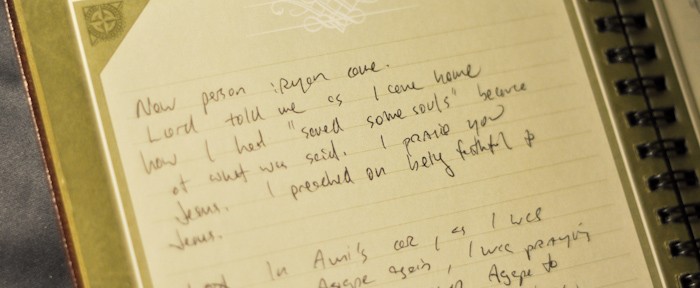 New person : Ryan came.
Lord told me as I came home
how I had "saved some souls" because
of what was said. I praise you
Jesus. I preached on being faithful to
Jesus.
In Ami's car, as I was
Agape again, I was praying
Agape to